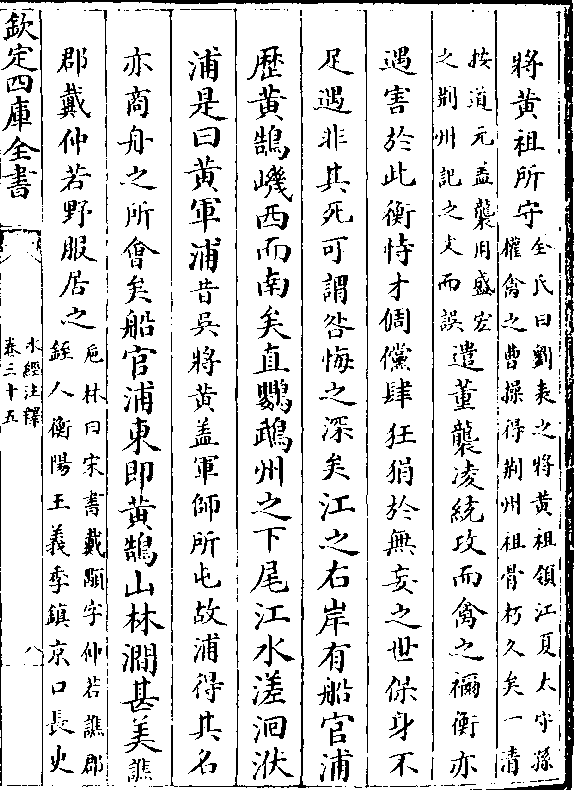 將黃祖所守全氏曰劉表之將黃祖領江夏太守孫
權禽之曹操得荆州祖骨朽久矣一清
按道元盖襲用盛宏
之荆州記之文而誤遣董襲凌統攻而禽之禰衡亦
遇害於此衡恃才倜儻肆狂狷於無妄之世保身不
足遇非其死可謂咎悔之深矣江之右岸有船官浦
歷黃鵠㠖西而南矣直鸚鵡州之下尾江水溠洄洑
浦是曰黃軍浦昔吳將黃盖軍師所屯故浦得其名
亦商舟之所會矣船官浦東即黃鵠山林澗甚美譙
郡戴仲若野服居之卮林曰宋書戴顒字仲若譙郡
銍人衡陽王義季鎮京口長史
欽定四庫全書
水經注釋
卷三十五
八